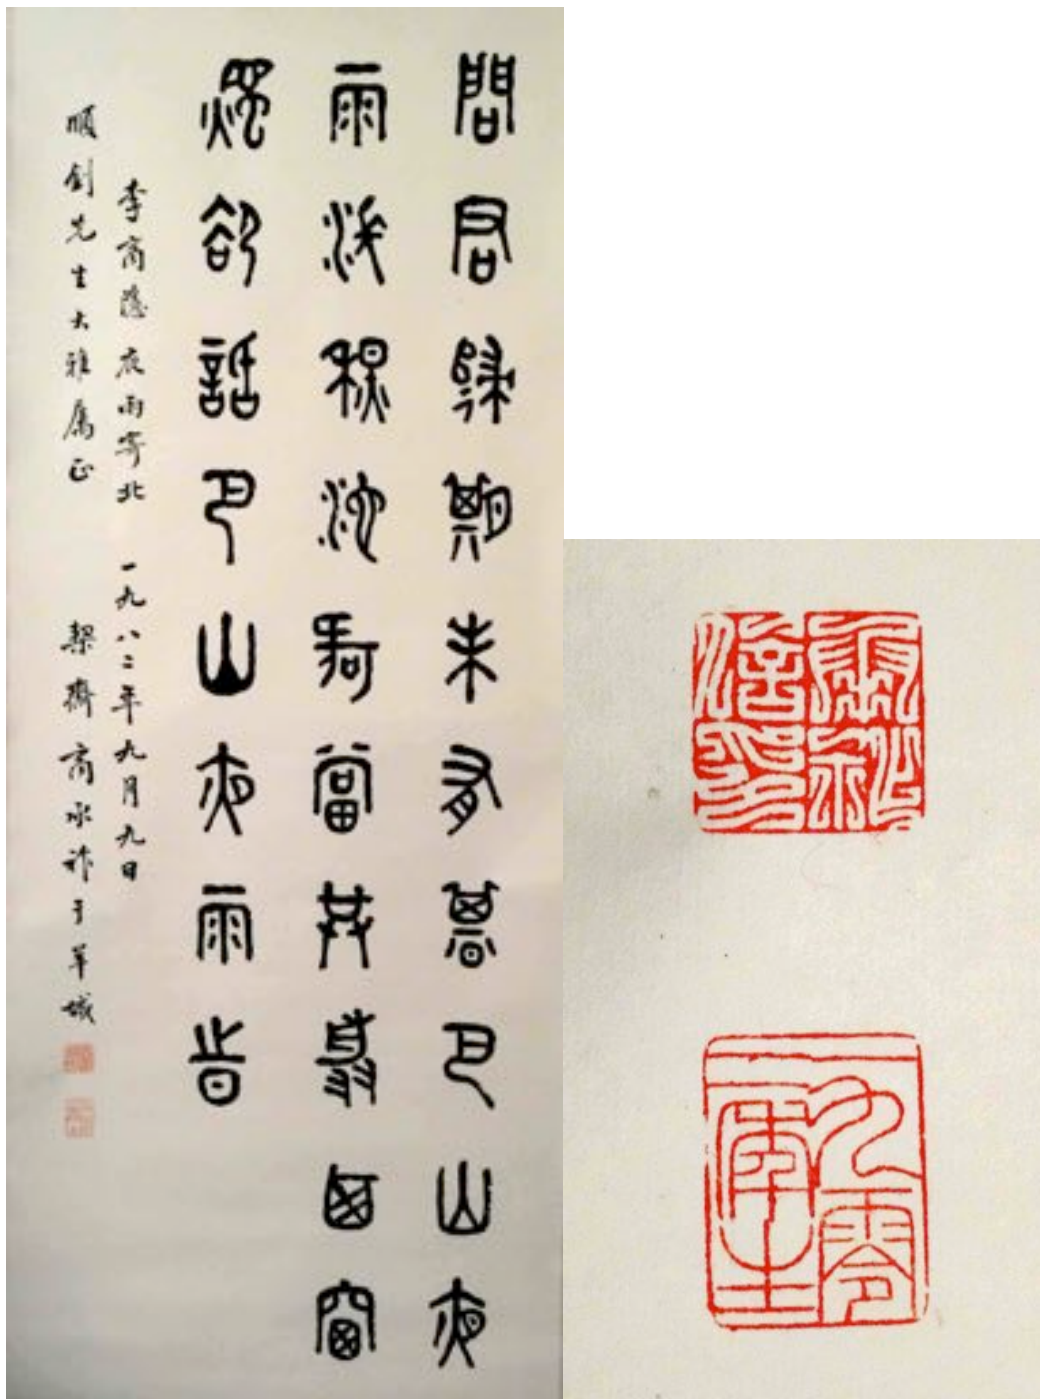 問君歸期未有朞巴山夜
雨漲秋池何當共翦西窗
燭卻話巴山夜雨旹
李商隱夜雨寄北 一九八二年九月九日
順釗先生大雅屬正 契齋商承祚于羊城
一九零二年生